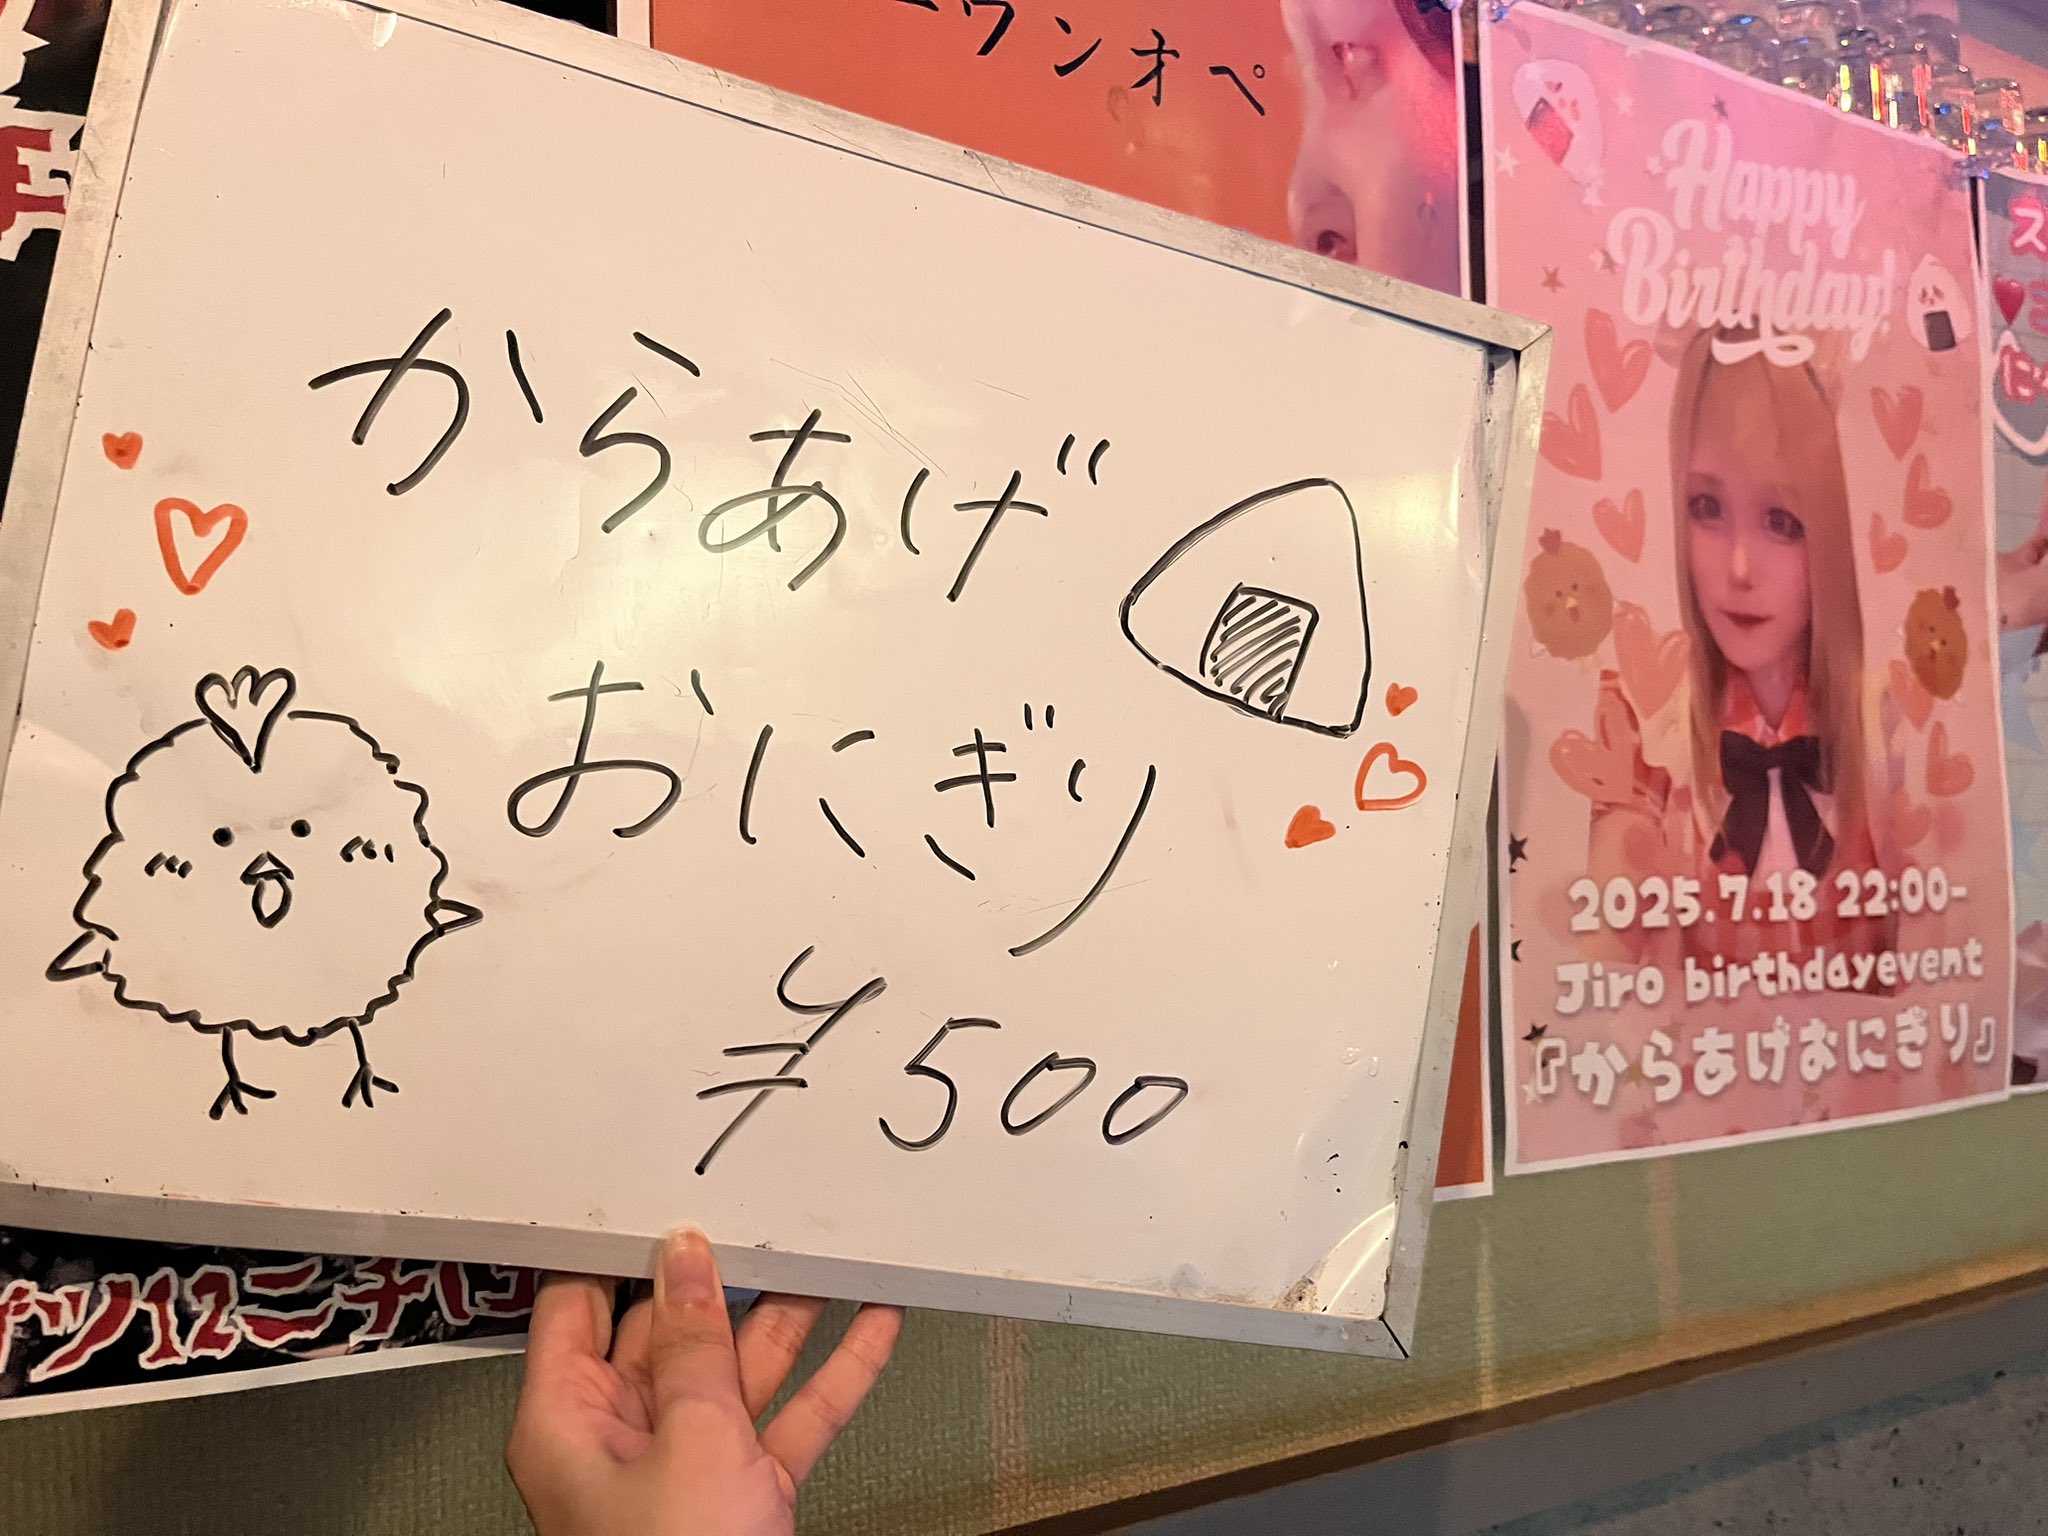 からあげ
おにぎり
¥500
ワンオペ
Happy
Birthday!
2025.7.18 22:00-
Jiro birthdayevent
『からあげおにぎり』